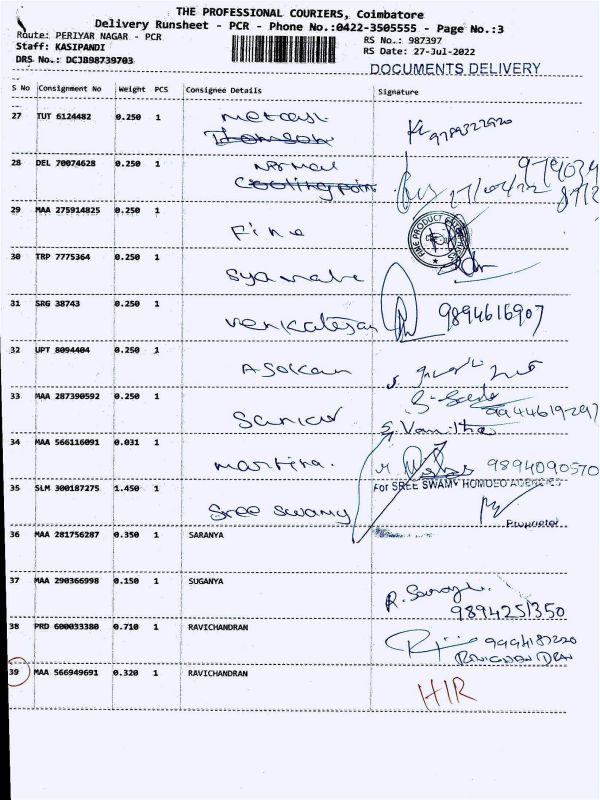 THE PROFESSIONAL COURIERS, Coimbatore
Delivery Runsheet - PCR - Phone No.:0422-3505555 - Page No.:3
Route: PERIYAR NAGAR - PCR
RS No.: 987397
Staff: KASIPANDI
RS Date: 27-Jul-2022
DRS No.: DCJB98739703
DOCUMENTS DELIVERY
S No Consignment No Weight PCS Consignee Details Signature
27 TUT 6124482 0.250 1
Thomson
9789322920
28 DEL 70074628 0.250 1 Normal
Cooling point
27/07/22
29 MAA 275914825 0.250 1
Fine
FINE PRODUCT
30 TRP 7775364 0.250 1
Syamala
31 SRG 38743 0.250 1
Venkatesan 9894616907
32 UPT 8094404 0.250 1
Asokan
33 MAA 287390592 0.250 1
9944619297
Sankar
S. Vanitha
34 MAA 566116091 0.031 1
Martina. 9894090570
35 SLM 300187275 1.450 1
For SREE SWAMY HOMOEO AGENCIES
Sree Swamy
Proprietor
36 MAA 281756287 0.350 1 SARANYA
37 MAA 290366998 0.150 1 SUGANYA
9894251350
38 PRD 600033380 0.710 1 RAVICHANDRAN
9994187220
RAVICHANDRAN
39 MAA 566949691 0.320 1 RAVICHANDRAN
HIR